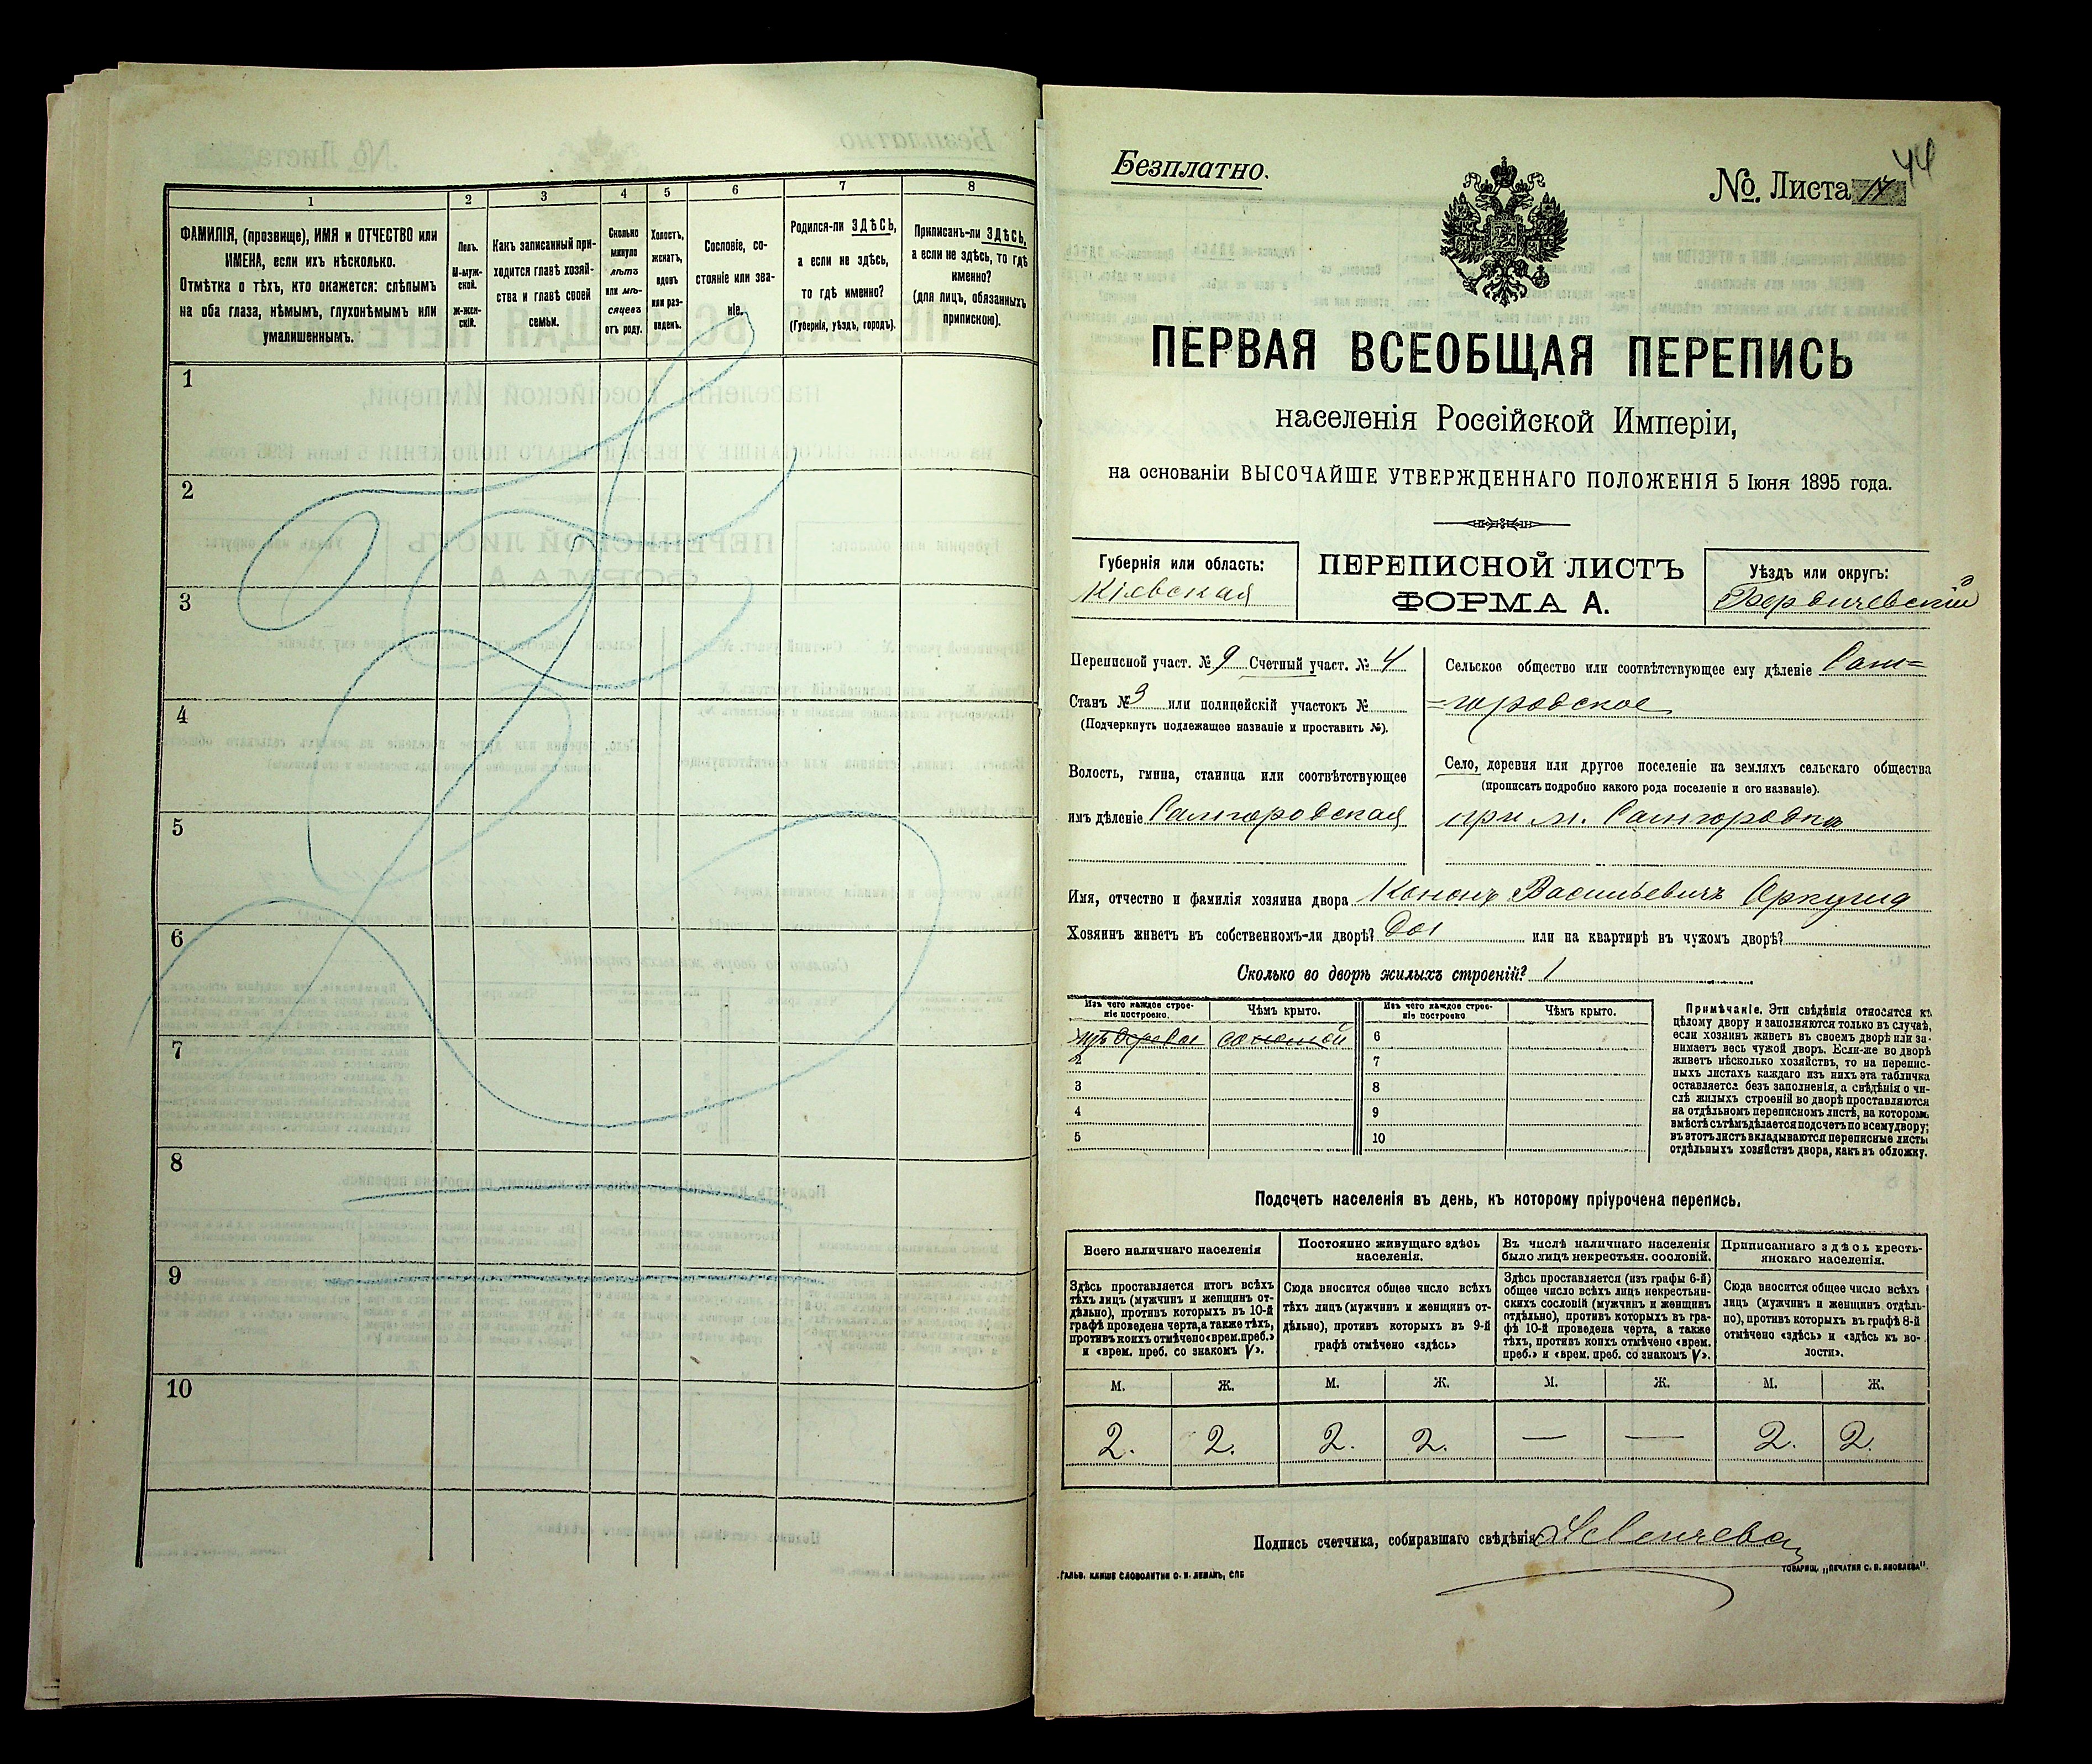 1
2
3
4
5
6
7
8
ФАМИЛІЯ, (прозвище), ИМЯ и ОТЧЕСТВО или
ИМЕНА, если ихъ нѣсколько.
Отмѣтка о тѣхъ, кто окажется: слѣпымъ
на оба глаза, нѣмымъ, глухонѣмымъ или
умалишеннымъ.
Полъ.
М-муж-
ской.
Ж-жен-
скій.
Какъ записанный при-
ходится главѣ хозяй-
ства и главѣ своей
семьи.
Сколько
минуло
лѣтъ
или мѣ-
сяцевъ
отъ роду.
Холостъ,
женатъ,
вдовъ
или раз-
веденъ.
Сословіе, со-
стояніе или зва-
ніе.
Родился-ли ЗДѢСЬ,
а если не здѣсь,
то гдѣ именно?
(Губернія, уѣздъ, городъ).
Приписанъ-ли ЗДѢСЬ,
а если не здѣсь, то гдѣ
именно?
(для лицъ, обязанныхъ
припискою).
1
2
3
4
5
6
7
8
9
10
Безплатно.
№ Листа 14
44
ПЕРВАЯ ВСЕОБЩАЯ ПЕРЕПИСЬ
населенія Россійской Имперіи,
на основаніи ВЫСОЧАЙШЕ УТВЕРЖДЕННАГО ПОЛОЖЕНІЯ 5 Іюня 1895 года.
Губернія или область:
Кіевская
ПЕРЕПИСНОЙ ЛИСТЪ
ФОРМА А.
Уѣздъ или округъ:
Бердичевскій
Переписной участ. № 9 Счетный участ. № 4
Станъ № 3 или полицейскій участокъ №
(Подчеркнуть подлежащее названіе и проставить №).
Волость, гмина, станица или соотвѣтствующее
имъ дѣленіе Самгородская
Сельское общество или соотвѣтствующее ему дѣленіе Сам=
=городское
Село, деревня или другое поселеніе на земляхъ сельскаго общества
(прописать подробно какого рода поселеніе и его названіе).
при м. Самгородкѣ
Имя, отчество и фамилія хозяина двора Кононъ Васильевичъ
Хозяинъ живетъ въ собственномъ-ли дворѣ? Да или на квартирѣ въ чужомъ дворѣ?
Сколько во дворѣ жилыхъ строеній? 1
Изъ чего каждое строе-
ніе построено.
Чѣмъ крыто.
Изъ чего каждое строе-
ніе построено
Чѣмъ крыто.
изъ дерева соломой
6
2
7
3
8
4
9
5
10
Примѣчаніе. Эти свѣдѣнія относятся къ
цѣлому двору и заполняются только въ случаѣ,
если хозяинъ живетъ въ своемъ дворѣ или за-
нимаетъ весь чужой дворъ. Если-же во дворѣ
живетъ нѣсколько хозяйствъ, то на перепис-
ныхъ листахъ каждаго изъ нихъ эта табличка
оставляется безъ заполненія, а свѣдѣнія о чи-
слѣ жилыхъ строеній во дворѣ проставляются
на отдѣльномъ переписномъ листѣ, на которомъ
вмѣстѣ съ тѣмъ дѣлается подсчетъ по всему двору;
въ этотъ листъ вкладываются переписные листы
отдѣльныхъ хозяйствъ двора, какъ въ обложку.
Подсчетъ населенія въ день, къ которому пріурочена перепись.
Всего наличнаго населенія
Здѣсь проставляется итогъ всѣхъ
тѣхъ лицъ (мужчинъ и женщинъ от-
дѣльно), противъ которыхъ въ 10-й
графѣ проведена черта, а также тѣхъ,
противъ коихъ отмѣчено «врем. преб.»
и «врем. преб. со знакомъ V».
Постоянно живущаго здѣсь
населенія.
Сюда вносится общее число всѣхъ
тѣхъ лицъ (мужчинъ и женщинъ от-
дѣльно), противъ которыхъ въ 9-й
графѣ отмѣчено «здѣсь»
Въ числѣ наличнаго населенія
было лицъ некрестьян. сословій.
Здѣсь проставляется (изъ графы 6-й)
общее число всѣхъ лицъ некрестьян-
скихъ сословій (мужчинъ и женщинъ
отдѣльно), противъ которыхъ въ гра-
фѣ 10-й проведена черта, а также
тѣхъ, противъ коихъ отмѣчено «врем.
преб.» и «врем. преб. со знакомъ V».
Приписаннаго здѣсь кресть-
янскаго населенія.
Сюда вносится общее число всѣхъ
лицъ (мужчинъ и женщинъ отдѣль-
но), противъ которыхъ въ графѣ 8-й
отмѣчено «здѣсь» и «здѣсь въ во-
лости».
М. Ж. М. Ж. М. Ж. М. Ж.
2. 2. 2. 2. — — 2. 2.
Подпись счетчика, собиравшаго свѣдѣнія
ГАЛЬВ. КЛИШЕ СЛОВОЛИТНИ О. И. ЛЕМАНЪ, СПБ
ТОВАРИЩ. „ПЕЧАТНЯ С. П. ЯКОВЛЕВА".